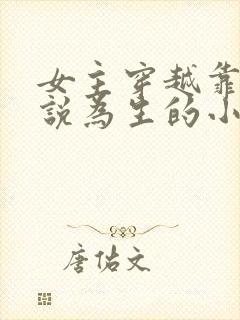 女主穿越靠
說為生的小
唐佑文